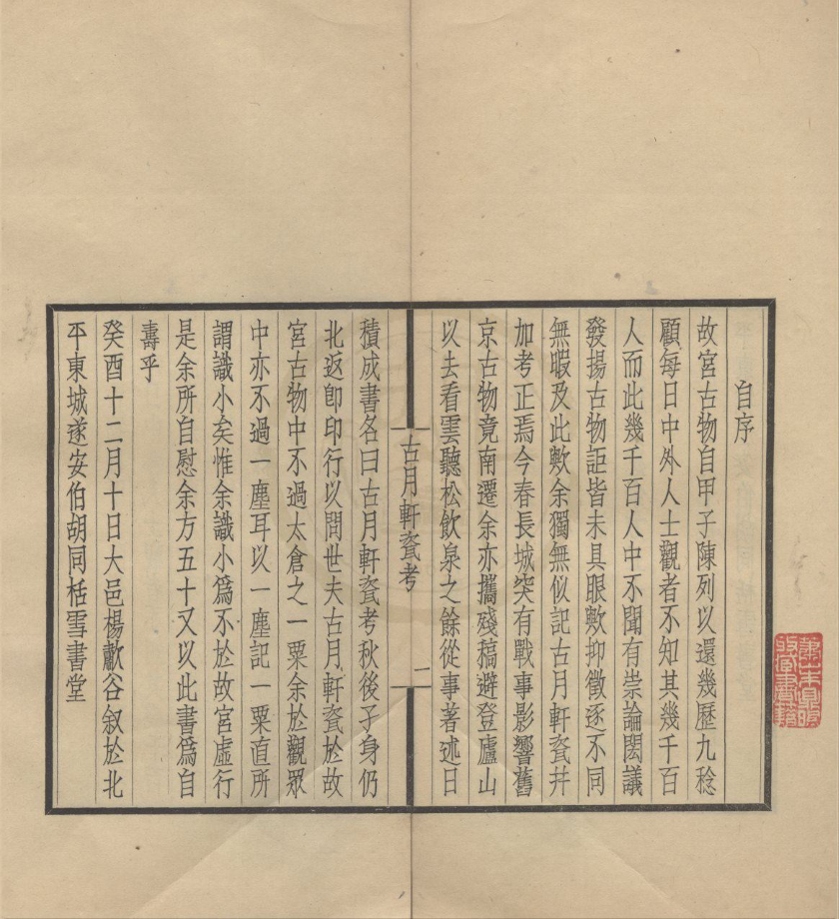 自序
故宮古物自甲子陳列以還幾歷九稔
顧每日中外人士觀者不知其幾千百
人而此幾千百人中不聞有崇論閎議
發揚古物詎皆未具眼歟抑徵逐不同
無暇及此歟余獨無似記古月軒瓷并
加考正焉今春長城突有戰事影響舊
京古物竟南遷余亦攜殘稿避登廬山
以去看雲聽松飲泉之餘從事著述日
古月軒瓷考
一
積成書名曰古月軒瓷考秋後子身仍
北返卽印行以問世夫古月軒瓷於故
宮古物中不過太倉之一粟余於觀眾
中亦不過一塵耳以一塵記一粟直所
謂識小矣惟余識小爲不於故宮虛行
是余所自慰余方五十又以此書爲自
壽乎
癸酉十二月十日大邑楊歗谷叙於北
平東城遂安伯胡同栝雪書堂